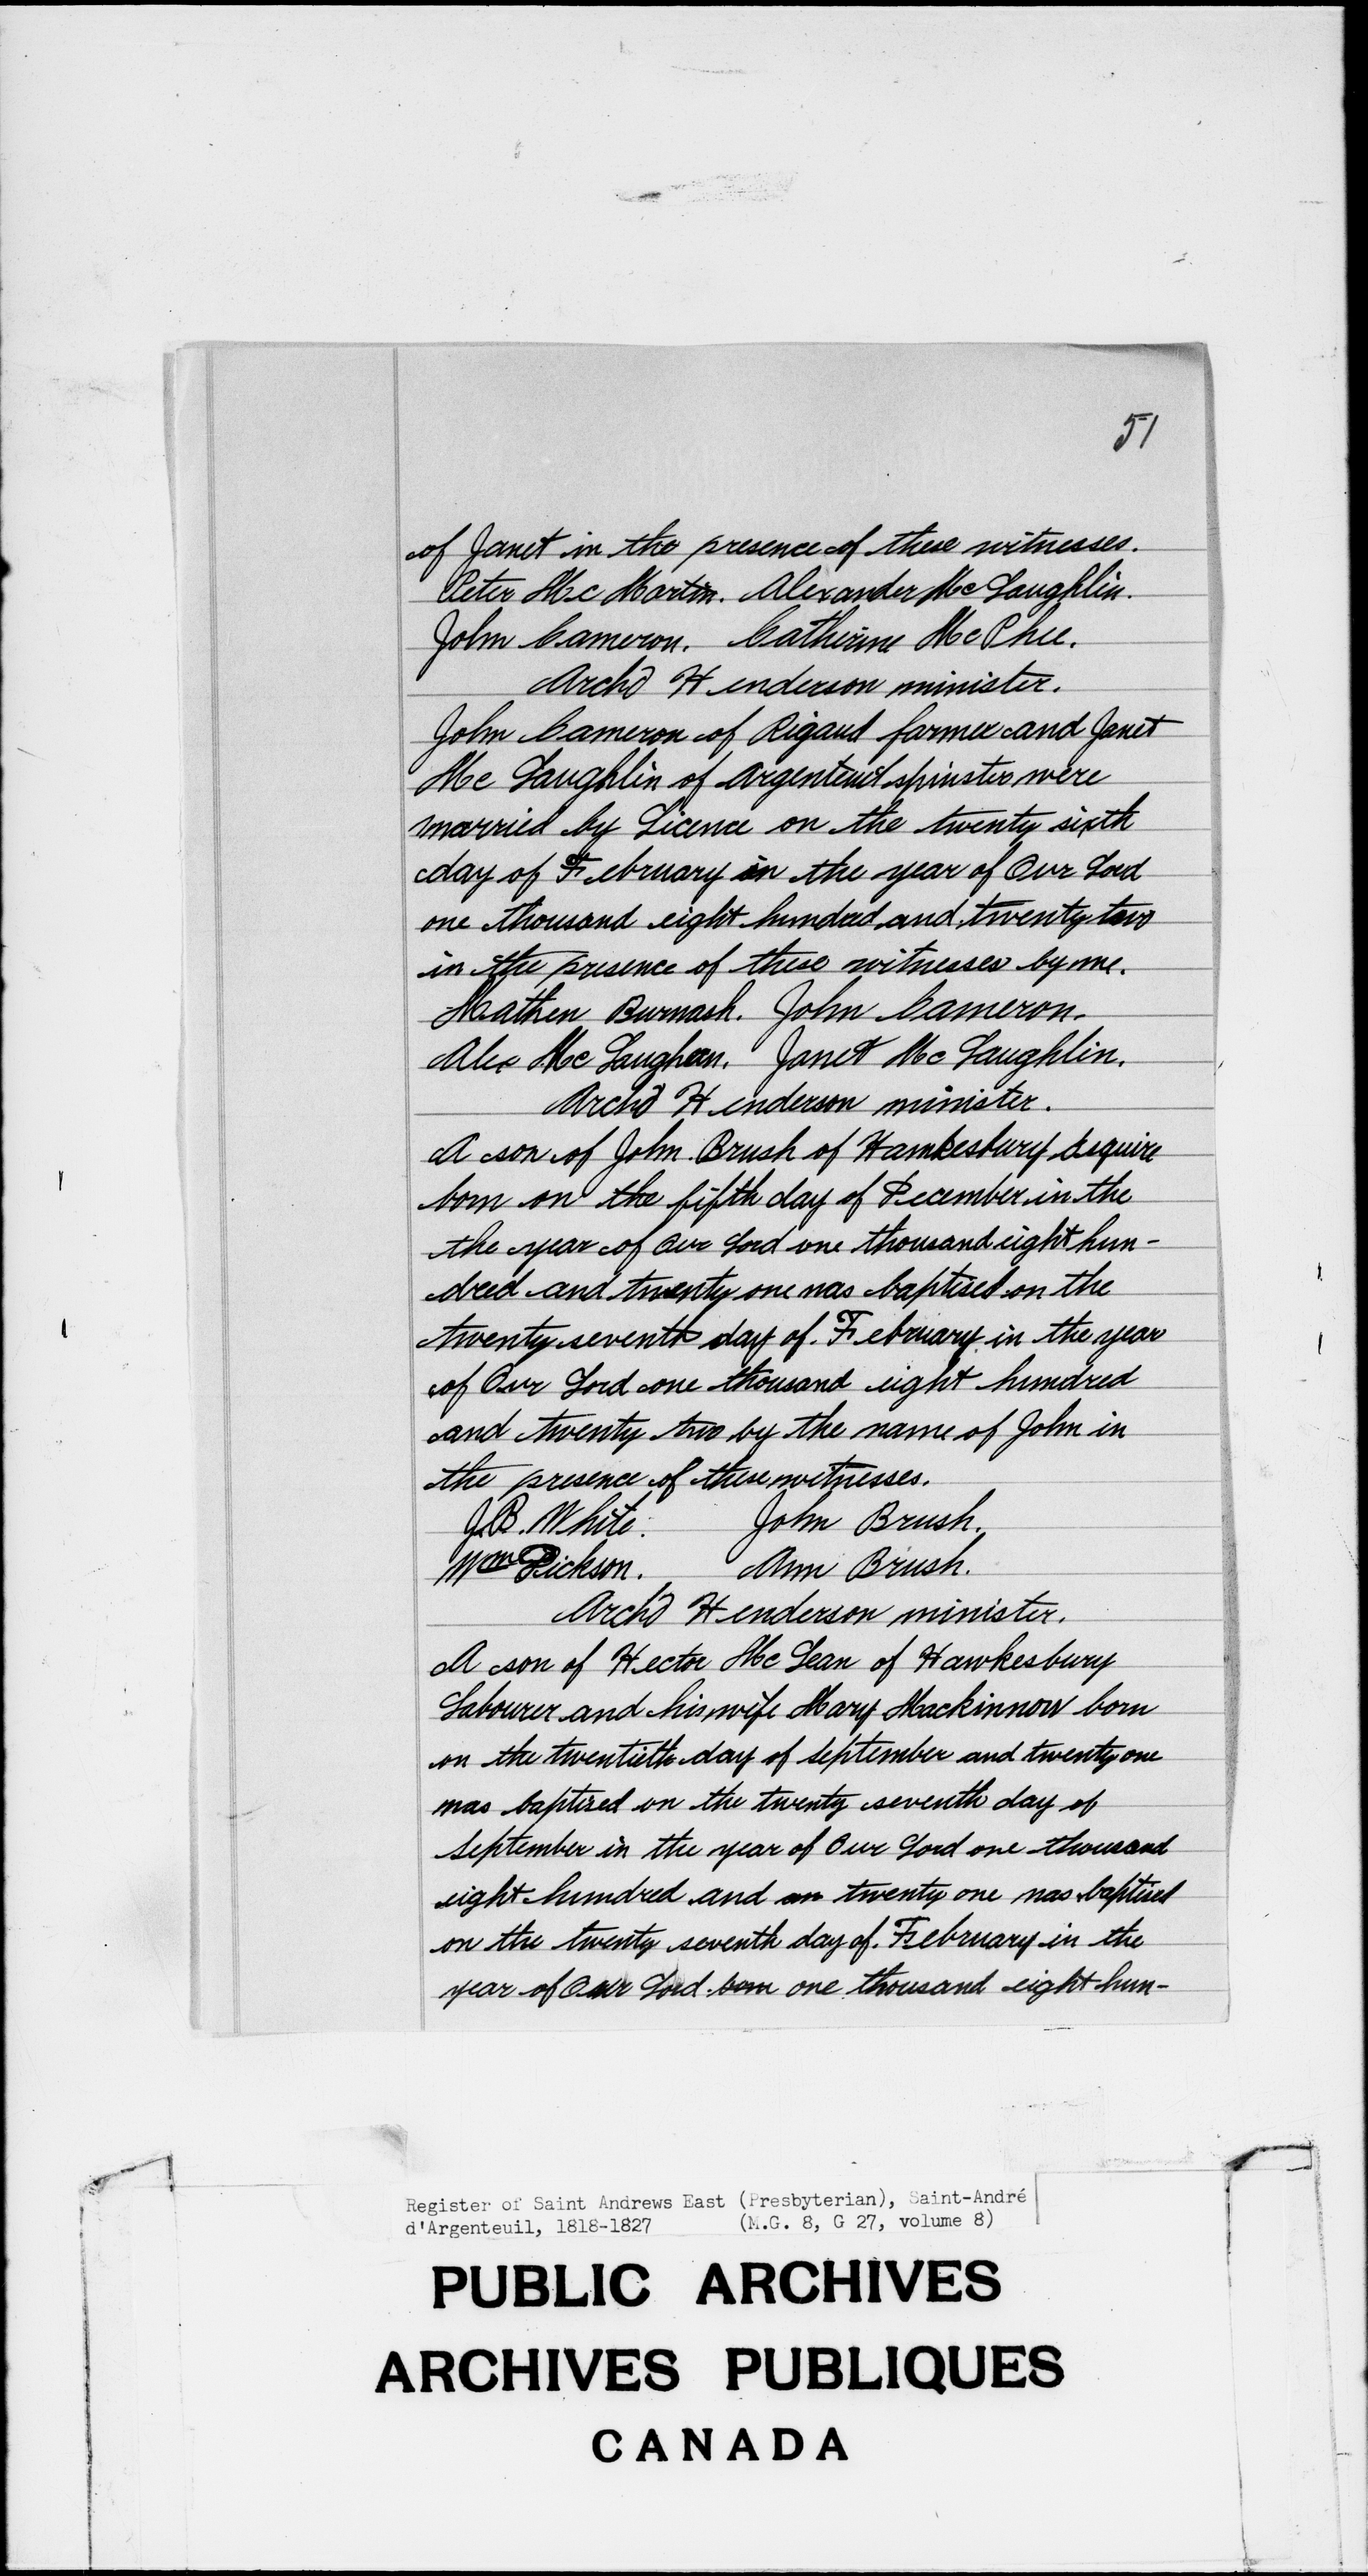 51
of Janet in the presence of these witnesses.
Peter Mc Martin. Alexander Mc Laughlin.
John Cameron. Catherine Mc Phee.
Archd Henderson minister.
John Cameron of Rigaud farmer and Janet
Mc Laughlin of Argenteuil spinster were
married by Licence on the twenty sixth
day of February in the year of Our Lord
one thousand eight hundred and twenty two
in the presence of these witnesses by me.
Mathew Burwash. John Cameron.
Alex Mc Laughan. Janet Mc Laughlin.
Archd Henderson minister.
A son of John Brush of Hawkesbury Esquire
born on the fifth day of December in the
the year of Our Lord one thousand eight hun-
dred and twenty one was baptised on the
twenty seventh day of February in the year
of Our Lord one thousand eight hundred
and twenty two by the name of John in
the presence of these witnesses.
J.B. White. John Brush.
Wm Dickson. Ann Brush.
Archd Henderson minister.
A son of Hector Mc Lean of Hawkesbury
Labourer and his wife Mary Mackinnow born
on the twentieth day of September and twenty one
was baptised on the twenty seventh day of
September in the year of Our Lord one thousand
eight hundred and an twenty one was baptised
on the twenty seventh day of February in the
year of Our Lord born one thousand eight hun-
Register of Saint Andrews East (Presbyterian), Saint-André
d'Argenteuil, 1818-1827 (M.G. 8, G 27, volume 8)
PUBLIC ARCHIVES
ARCHIVES PUBLIQUES
CANADA